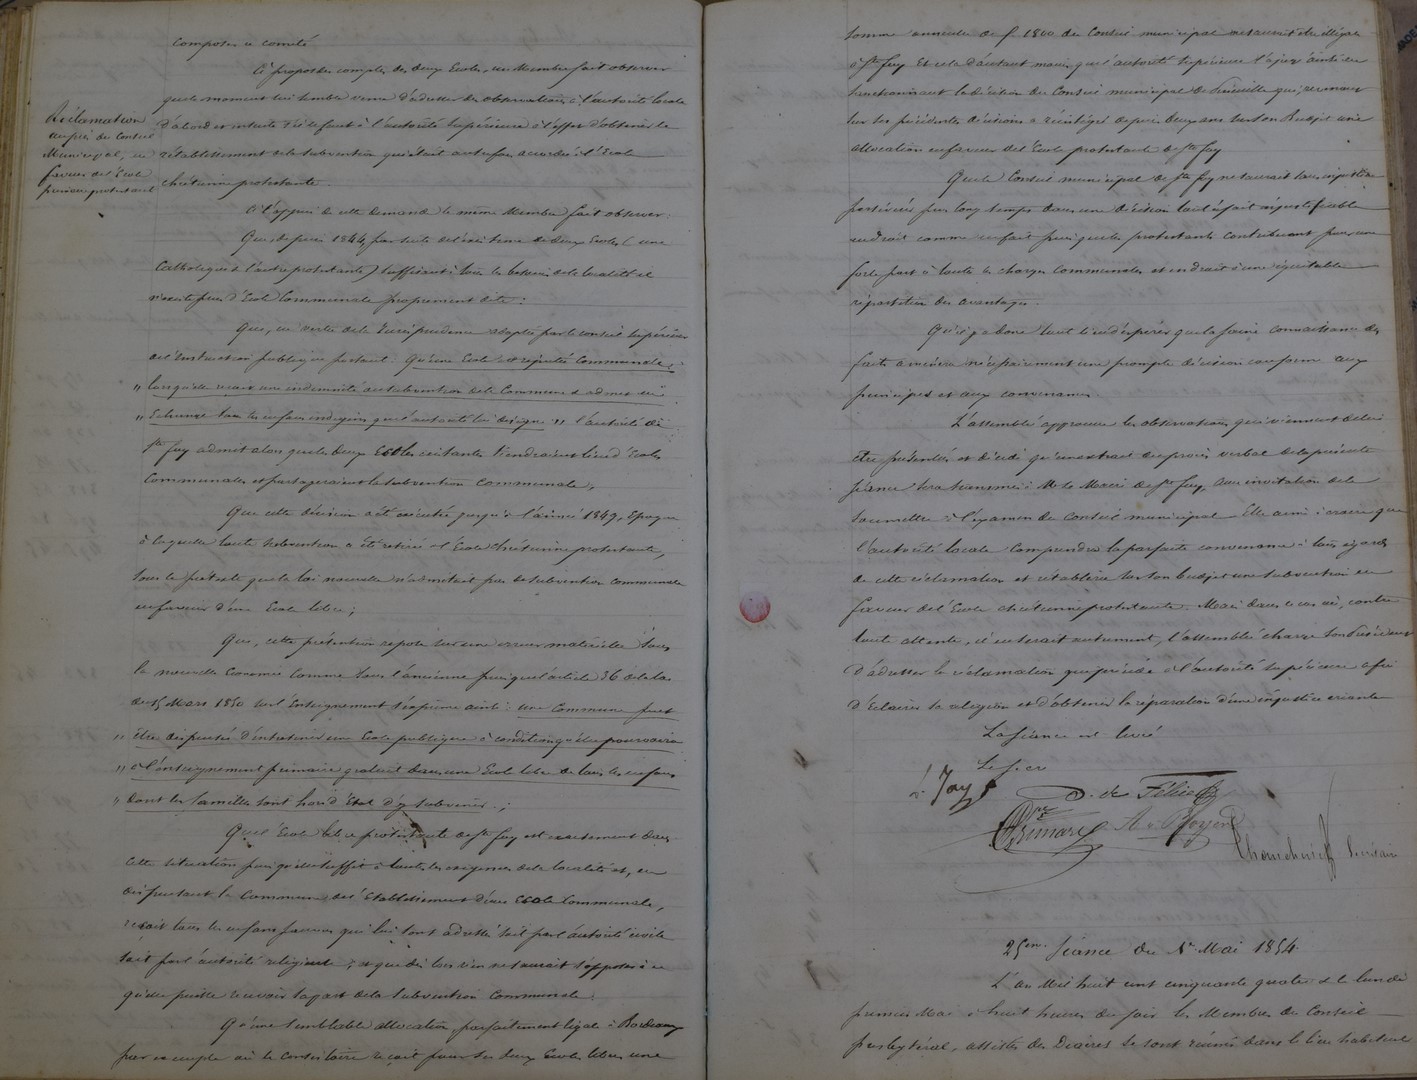 composer ce comité
A propos des comptes des deux Ecoles, un Membre fait observer
que le moment lui semble venu d'adresser des observations à l'autorité locale
d'abord et ensuite s'il le faut à l'autorité supérieure à l'effet d'obtenir le
rétablissement de la subvention qui était autrefois accordée à l'Ecole
chrétienne protestante.
Réclamation
auprès du Conseil
Municipal, en
faveur de l'Ecole
primaire protestante
A l'appui de cette demande le même Membre fait observer :
Que, depuis 1844, par suite de l'existence de deux Ecoles (une
Catholique & l'autre protestante) suffisant à tous les besoins de la localité il
n'existe plus d'Ecole Communale proprement dite :
Que, en vertu de la Jurisprudence adoptée par le conseil supérieur
de l'instruction publique portant : qu'une Ecole est réputée Communale,
" lorsqu'elle reçoit une indemnité ou subvention de la Commune & admet en
" Echange tous les enfans indigens que l'autorité lui désigne " l'autorité de
Ste Foy admit alors que les deux Ecoles existantes tiendraient lieu d'Ecoles
Communales et partageraient la subvention Communale,
Que cette décision a été exécutée jusqu'à l'année 1849, Epoque
à laquelle toute subvention a été retirée à l'Ecole chrétienne protestante,
sous le prétexte que la loi nouvelle n'admettait pas de subvention communale
en faveur d'une Ecole libre ;
Que, cette prétention repose sur une erreur matérielle sous
la nouvelle Economie comme sous l'ancienne puisque l'article 36 de la loi
du 15 Mars 1850 sur l'Enseignement s'exprime ainsi : une Commune peut
" être dispensée d'entretenir une Ecole publique à condition qu'elle pourvoira
" à l'enseignement primaire gratuit dans une Ecole libre de tous les enfans
" dont les familles sont hors d'Etat d'y subvenir. ;
Que l'Ecole libre protestante de Ste Foy est exactement dans
cette situation puisqu'elle suffit à toutes les exigences de la localité et, en
dispensant la Commune de l'Etablissement d'une Ecole Communale,
reçoit tous les enfans pauvres qui lui sont adressés soit par l'autorité civile
soit par l'autorité religieuse ; et que dès lors rien ne saurait s'opposer à ce
qu'elle puisse recevoir sa part de la subvention Communale :
Qu'une semblable allocation, parfaitement légale à Bordeaux
par exemple où le Consistoire reçoit pour ses deux Ecoles libres une
somme annuelle de f. 1800 du Conseil municipal ne saurait être illégale
à Ste Foy Et cela d'autant moins que l'autorité supérieure l'a jugé ainsi en
sanctionnant la décision du Conseil municipal de qui, revenant
sur ses précédentes décisions a réintégré depuis deux ans sur son Budget une
allocation en faveur de l'Ecole protestante de Ste Foy
Que le Conseil municipal de Ste Foy ne saurait sans injustice
persévérer plus longtemps dans une décision tout à fait injustifiable
en droit comme en fait puisque les protestants contribuant pour une
forte part à toutes les charges communales ont droit à une équitable
répartition des avantages.
Qu'il y a donc tout lieu d'espérer que la saine connaissance des
faits amènera nécessairement une prompte décision conforme aux
principes et aux convenances.
L'assemblée approuve les observations qui viennent de lui
être présentées et décide qu'un extrait du procès verbal de la présente
séance sera transmis à Mr le Maire de Ste Foy, avec invitation de le
soumettre à l'examen du Conseil municipal. Elle aime à croire que
l'autorité locale comprendra la parfaite convenance à tous égards
de cette réclamation et rétablira sur son budget une subvention en
faveur de l'Ecole chrétienne protestante. Mais dans le cas où, contre
toute attente, il en serait autrement, l'assemblée charge son Président
d'adresser la réclamation qui précède à l'autorité supérieure afin
d'éclairer sa religion et d'obtenir la réparation d'une injustice criante
La séance est levée
D. de Félice
25eme Séance du 1er Mai 1854.
L'an Mil huit cent cinquante quatre & le lundi
premier Mai à huit heures du soir les Membres du Conseil
presbytéral, assistés des Diacres se sont réunis dans le lieu habituel